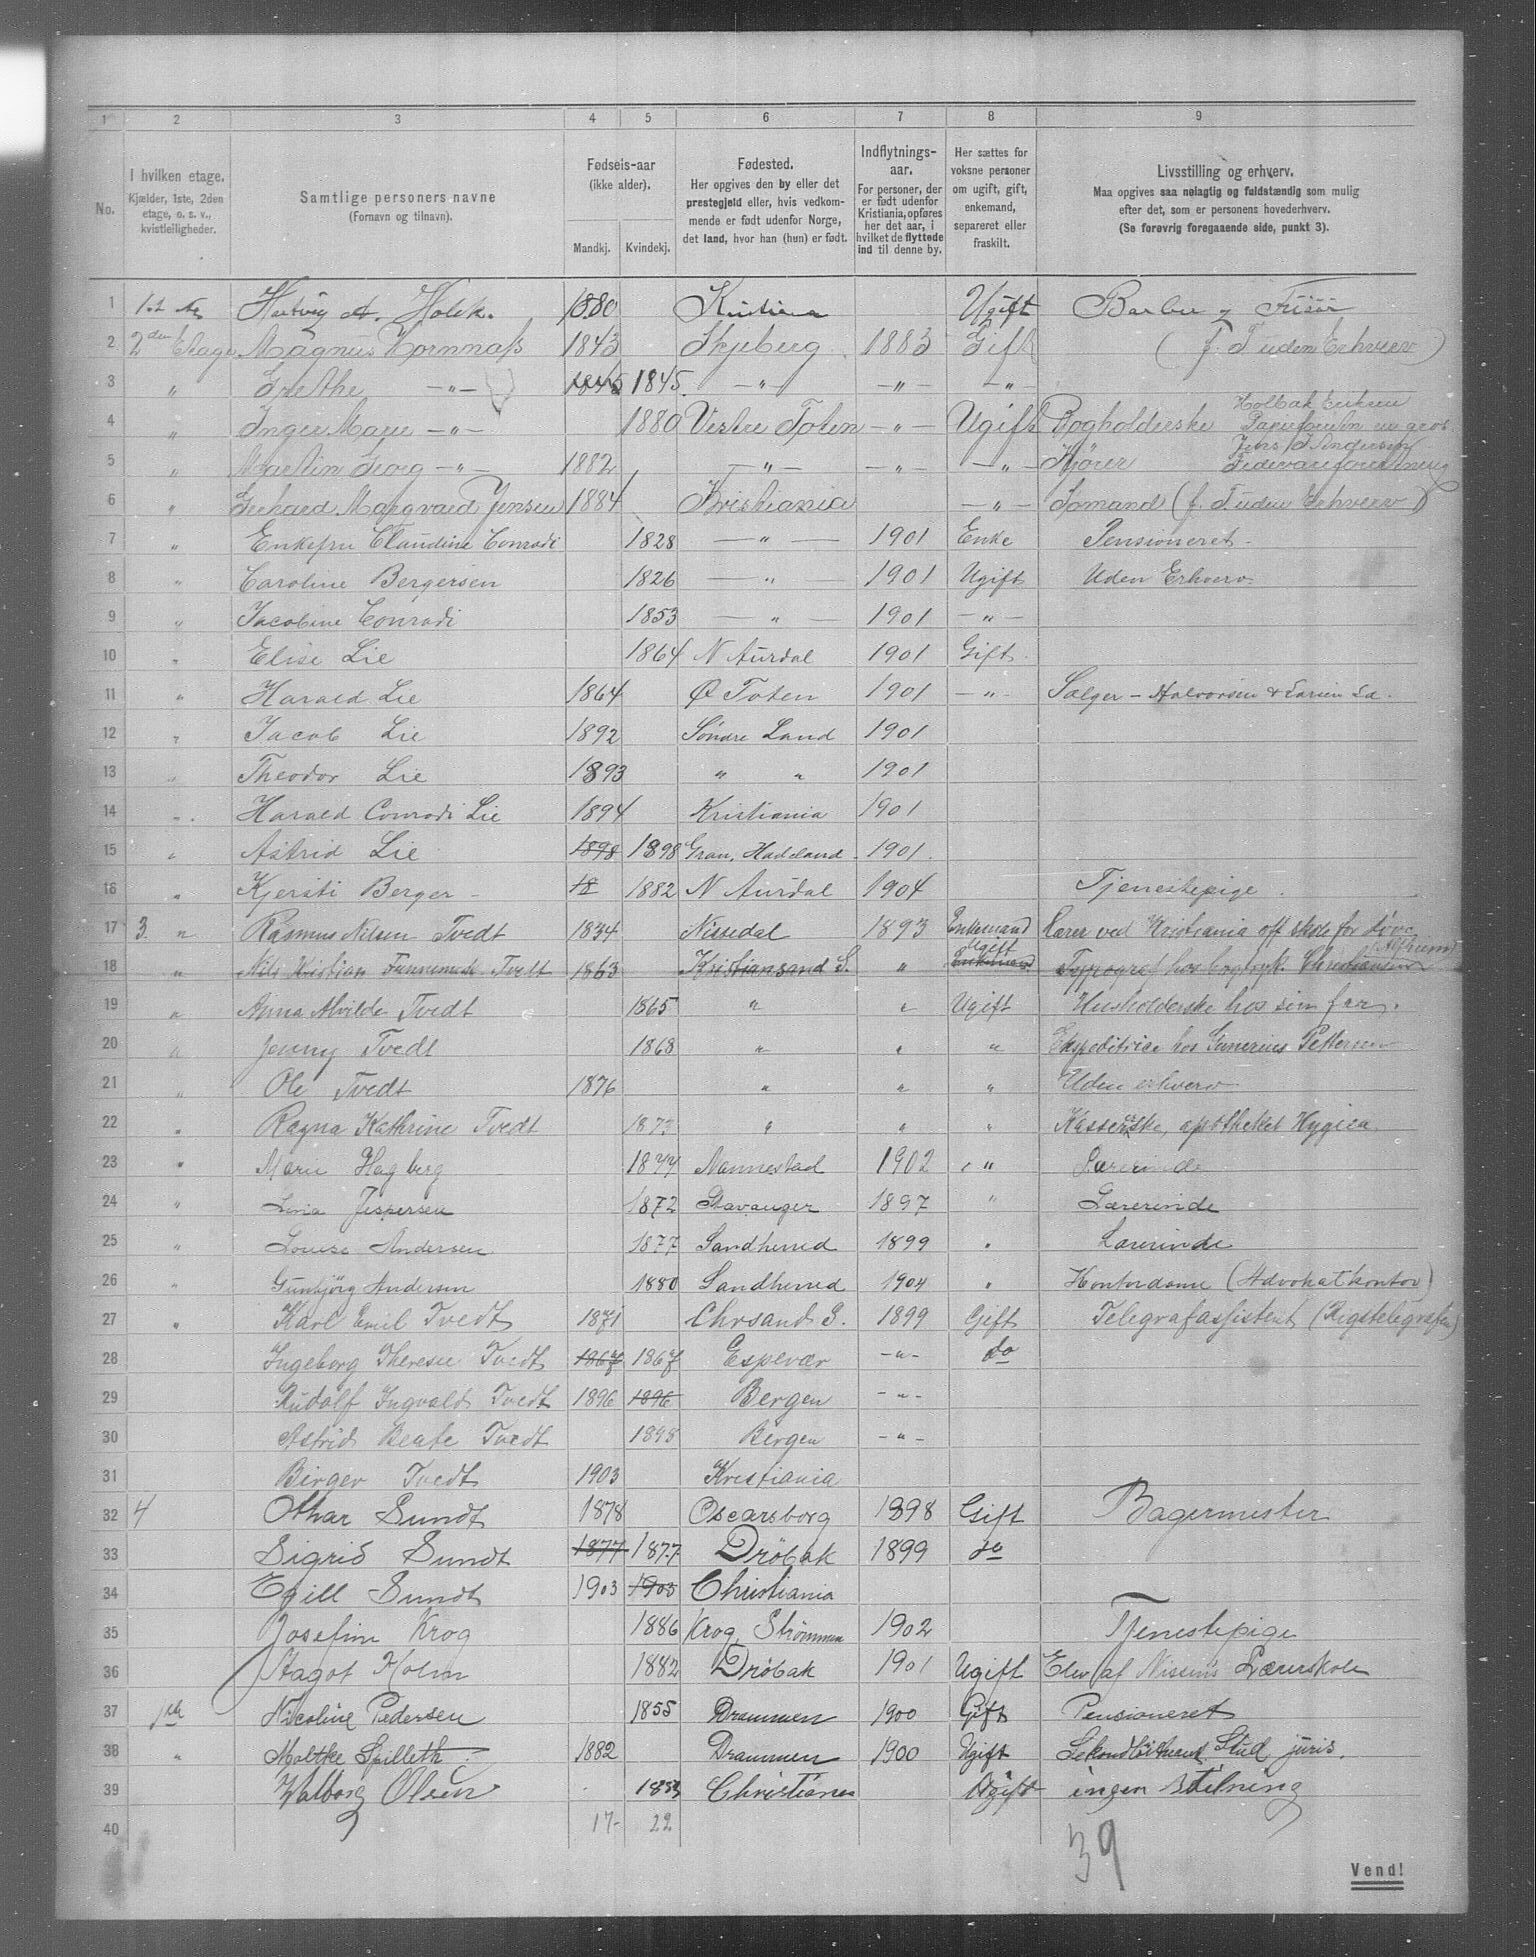 1 2 3 4 5 6 7 8 9
No.
I hvilken etage.
Kjælder, 1ste, 2den
etage, o. s. v.,
kvistleiligheder.
Samtlige personers navne
(Fornavn og tilnavn).
Fødsels-aar
(ikke alder).
Mandkj. Kvindekj.
Fødested.
Her opgives den by eller det
prestegjeld eller, hvis vedkom-
mende er født udenfor Norge,
det land, hvor han (hun) er født.
Indflytnings-
aar.
For personer, der
er født udenfor
Kristiania, opføres
her det aar, i
hvilket de flyttede
ind til denne by.
Her sættes for
voksne personer
om ugift, gift,
enkemand,
separeret eller
fraskilt.
Livsstilling og erhverv.
Maa opgives saa nøiagtig og fuldstændig som mulig
efter det, som er personens hovederhverv.
(Se forøvrig foregaaende side, punkt 3).
1 Hartvig A. Holck. 1880 Ugift Barber og Frisør
2 2den Etage Magnus Kornmaß 1843 Skjeberg 1883 Gift (f. T uden Erhverv)
3 " Grethe —"— 1845 1845 —"— —"— —"—
4 " Inger Marie —"— 1880 Vestre Toten —"— Ugift Bogholderske Holbak Eriksen Papirforretn en gros
5 " Martin Georg —"— 1882 —"— —"— —"— Kjører Jens J. Andersen Fedevareforretning
6 " Gerhard Marqvard Jensen 1884 Kristiania —"— Sømand (f. T uden Erhverv)
7 " Enkefru Claudine Conradi 1828 —"— 1901 Enke Pensioneret
8 " Caroline Bergersen 1826 —"— 1901 Ugift Uden Erhverv
9 " Jacobine Conradi 1853 —"— 1901 —"—
10 " Elise Lie 1864 N Aurdal 1901 Gift
11 " Harald Lie 1864 Ø Toten 1901 —"— Sælger – Halvorsen & Larsen Ld.
12 " Jacob Lie 1892 Søndre Land 1901
13 " Theodor Lie 1893 " " 1901
14 " Harald Conradi Lie 1894 Kristiania 1901
15 " Astrid Lie 1898 1898 Gran, Hadeland 1901
16 " Kjersti Berger 18 1882 N Aurdal 1904 Tjenestepige
17 3 " Rasmus Nilsen Tvedt 1834 Nissedal 1893 Enkemand Lærer ved Kristiania off skole for døve
18 " Nils Kristian Tvedt 1863 Kristiansand S. " Ugift Enkemand Typograf hos bogtryk. Christiansen
19 " Anna Alvilde Tvedt 1865 " " Ugift Husholderske hos sin far.
20 " Jenny Tvedt 1868 " " " Ekspeditrice hos Gunerius Pettersen
21 " Ole Tvedt 1876 " " " Uden erhverv
22 " Ragna Kathrine Tvedt 1873 " " " Kassererske, apotheket Hygiea
23 " Marie Hagberg 1877 Nannestad 1902 " Lærerinde
24 " Lina Jespersen 1872 Stavanger 1897 " Lærerinde
25 " Louise Andersen 1877 Sandherred 1899 " Lærerinde
26 " Gunbjörg Andersen 1880 Sandherred 1904 " Kontordame (Advokatkontor)
27 " Karl Emil Tvedt 1871 Chrsand S. 1899 Gift Telegrafassistent (Rigstelegrafen)
28 Ingeborg Therese Tvedt 1867 1867 Espevær —"— do
29 Rudolf Ingvald Tvedt 1896 1896 Bergen —"—
30 Astrid Beate Tvedt 1898 Bergen —"—
31 Birger Tvedt 1903 Kristiania
32 4 Othar Sundt 1878 Oscarsborg 1898 Gift Bagermester
33 Sigrid Sundt 1877 1877 Drøbak 1899 do
34 Egill Sundt 1903 1903 Christiania
35 Josefine Krog 1886 Krog, Strømmen 1902 Tjenestepige
36 Dagot Holm 1882 Drøbak 1901 Ugift Elev af Nissens Lærerskole
37 1ste Nicoline Pedersen 1855 Drammen 1900 Gift Pensioneret
38 " Moltke Spilleth 1882 Drammen 1900 Ugift Sekondløitnant, Stud juris.
39 Walborg Olsen Christiania Ugift ingen Stilning
40 17- 22
39
Vend!